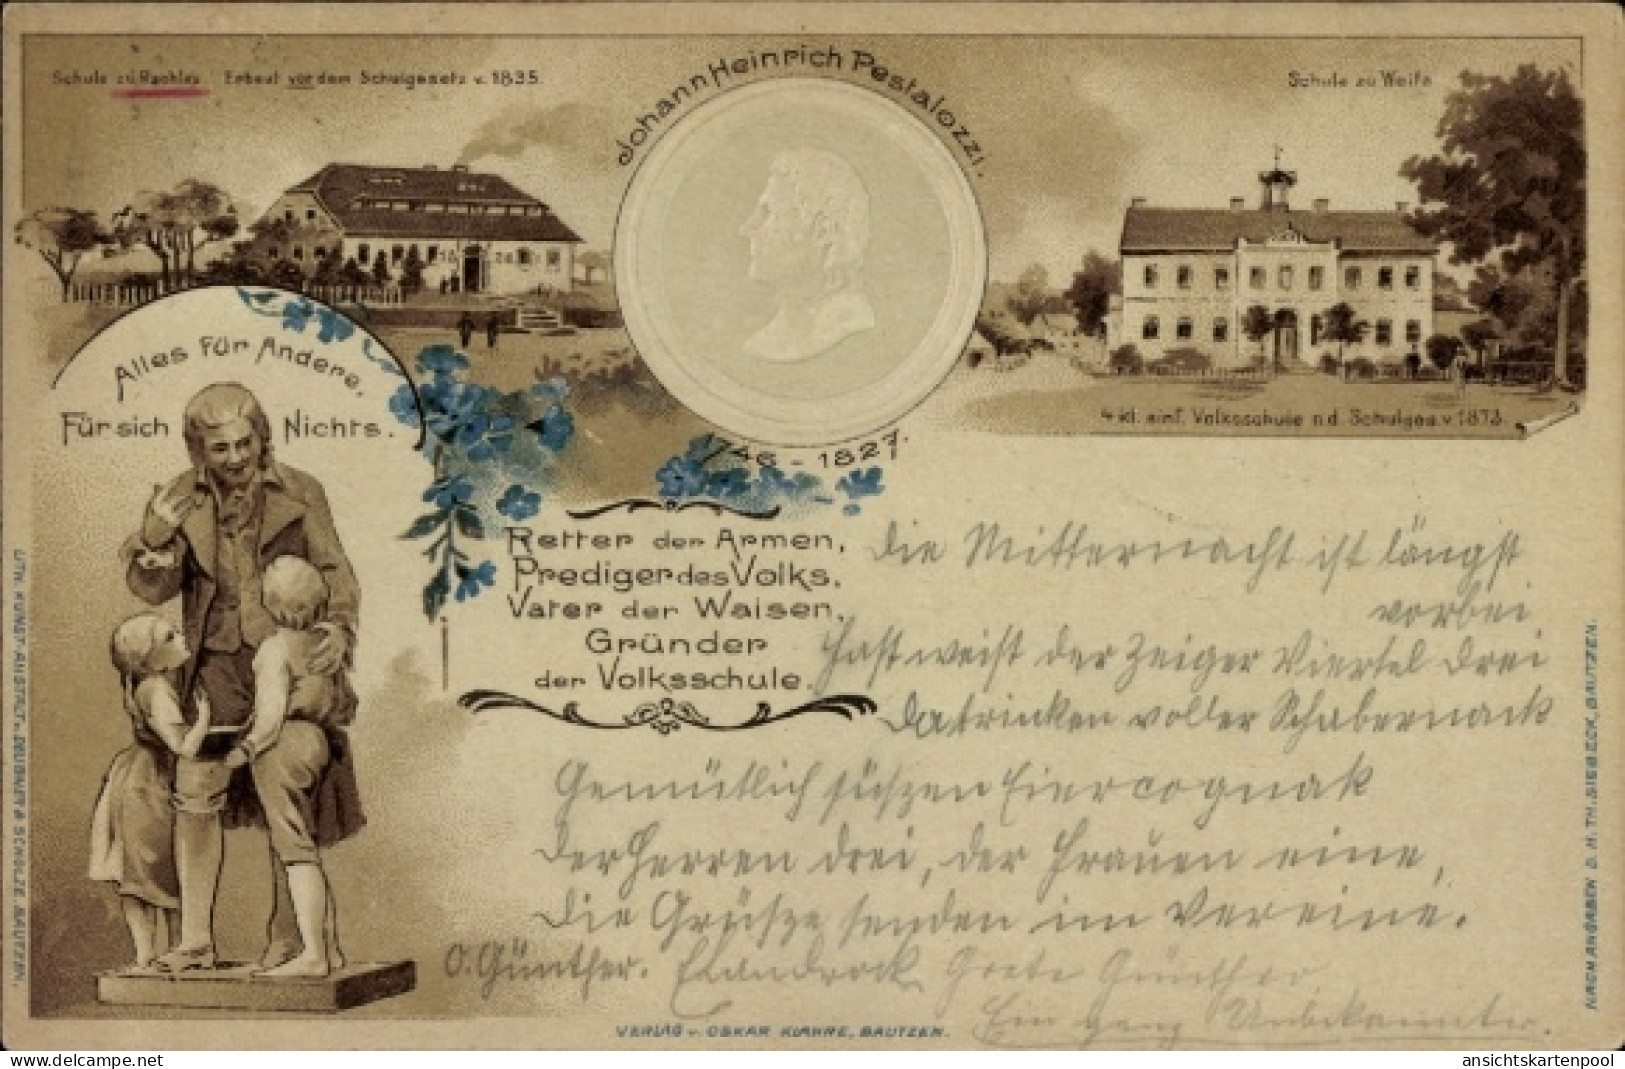 Schule zu Rachlau Erbaut vor dem Schulgesetz v. 1835.
Johann Heinrich Pestalozzi.
Schule zu Weifa
4 kl. einf. Volksschule n.d. Schulges. v. 1873.
1746 - 1827.
Alles für Andere.
Für sich Nichts.
Retter der Armen,
Prediger des Volks,
Vater der Waisen,
Gründer
der Volksschule.
Die Mitternacht ist längst
vorbei
Fast weist der Zeiger Viertel Drei
Da trinken voller Schabernack
Gemütlich süszen Eiercognak
Der Herren drei, der Frauen eine,
Die Grüsze senden im Vereine.
O. Günther. Grete Günther.
Ein ganz Unbekannter.
LITH. KUNST-ANSTALT, DEUBNER & SCHOLZE, BAUTZEN.
VERLAG v. OSKAR KLAHRE, BAUTZEN.
NACH ANGABEN D. H. TH. SISBECK, BAUTZEN.
https://www.delcampe.net
ansichtskartenpool